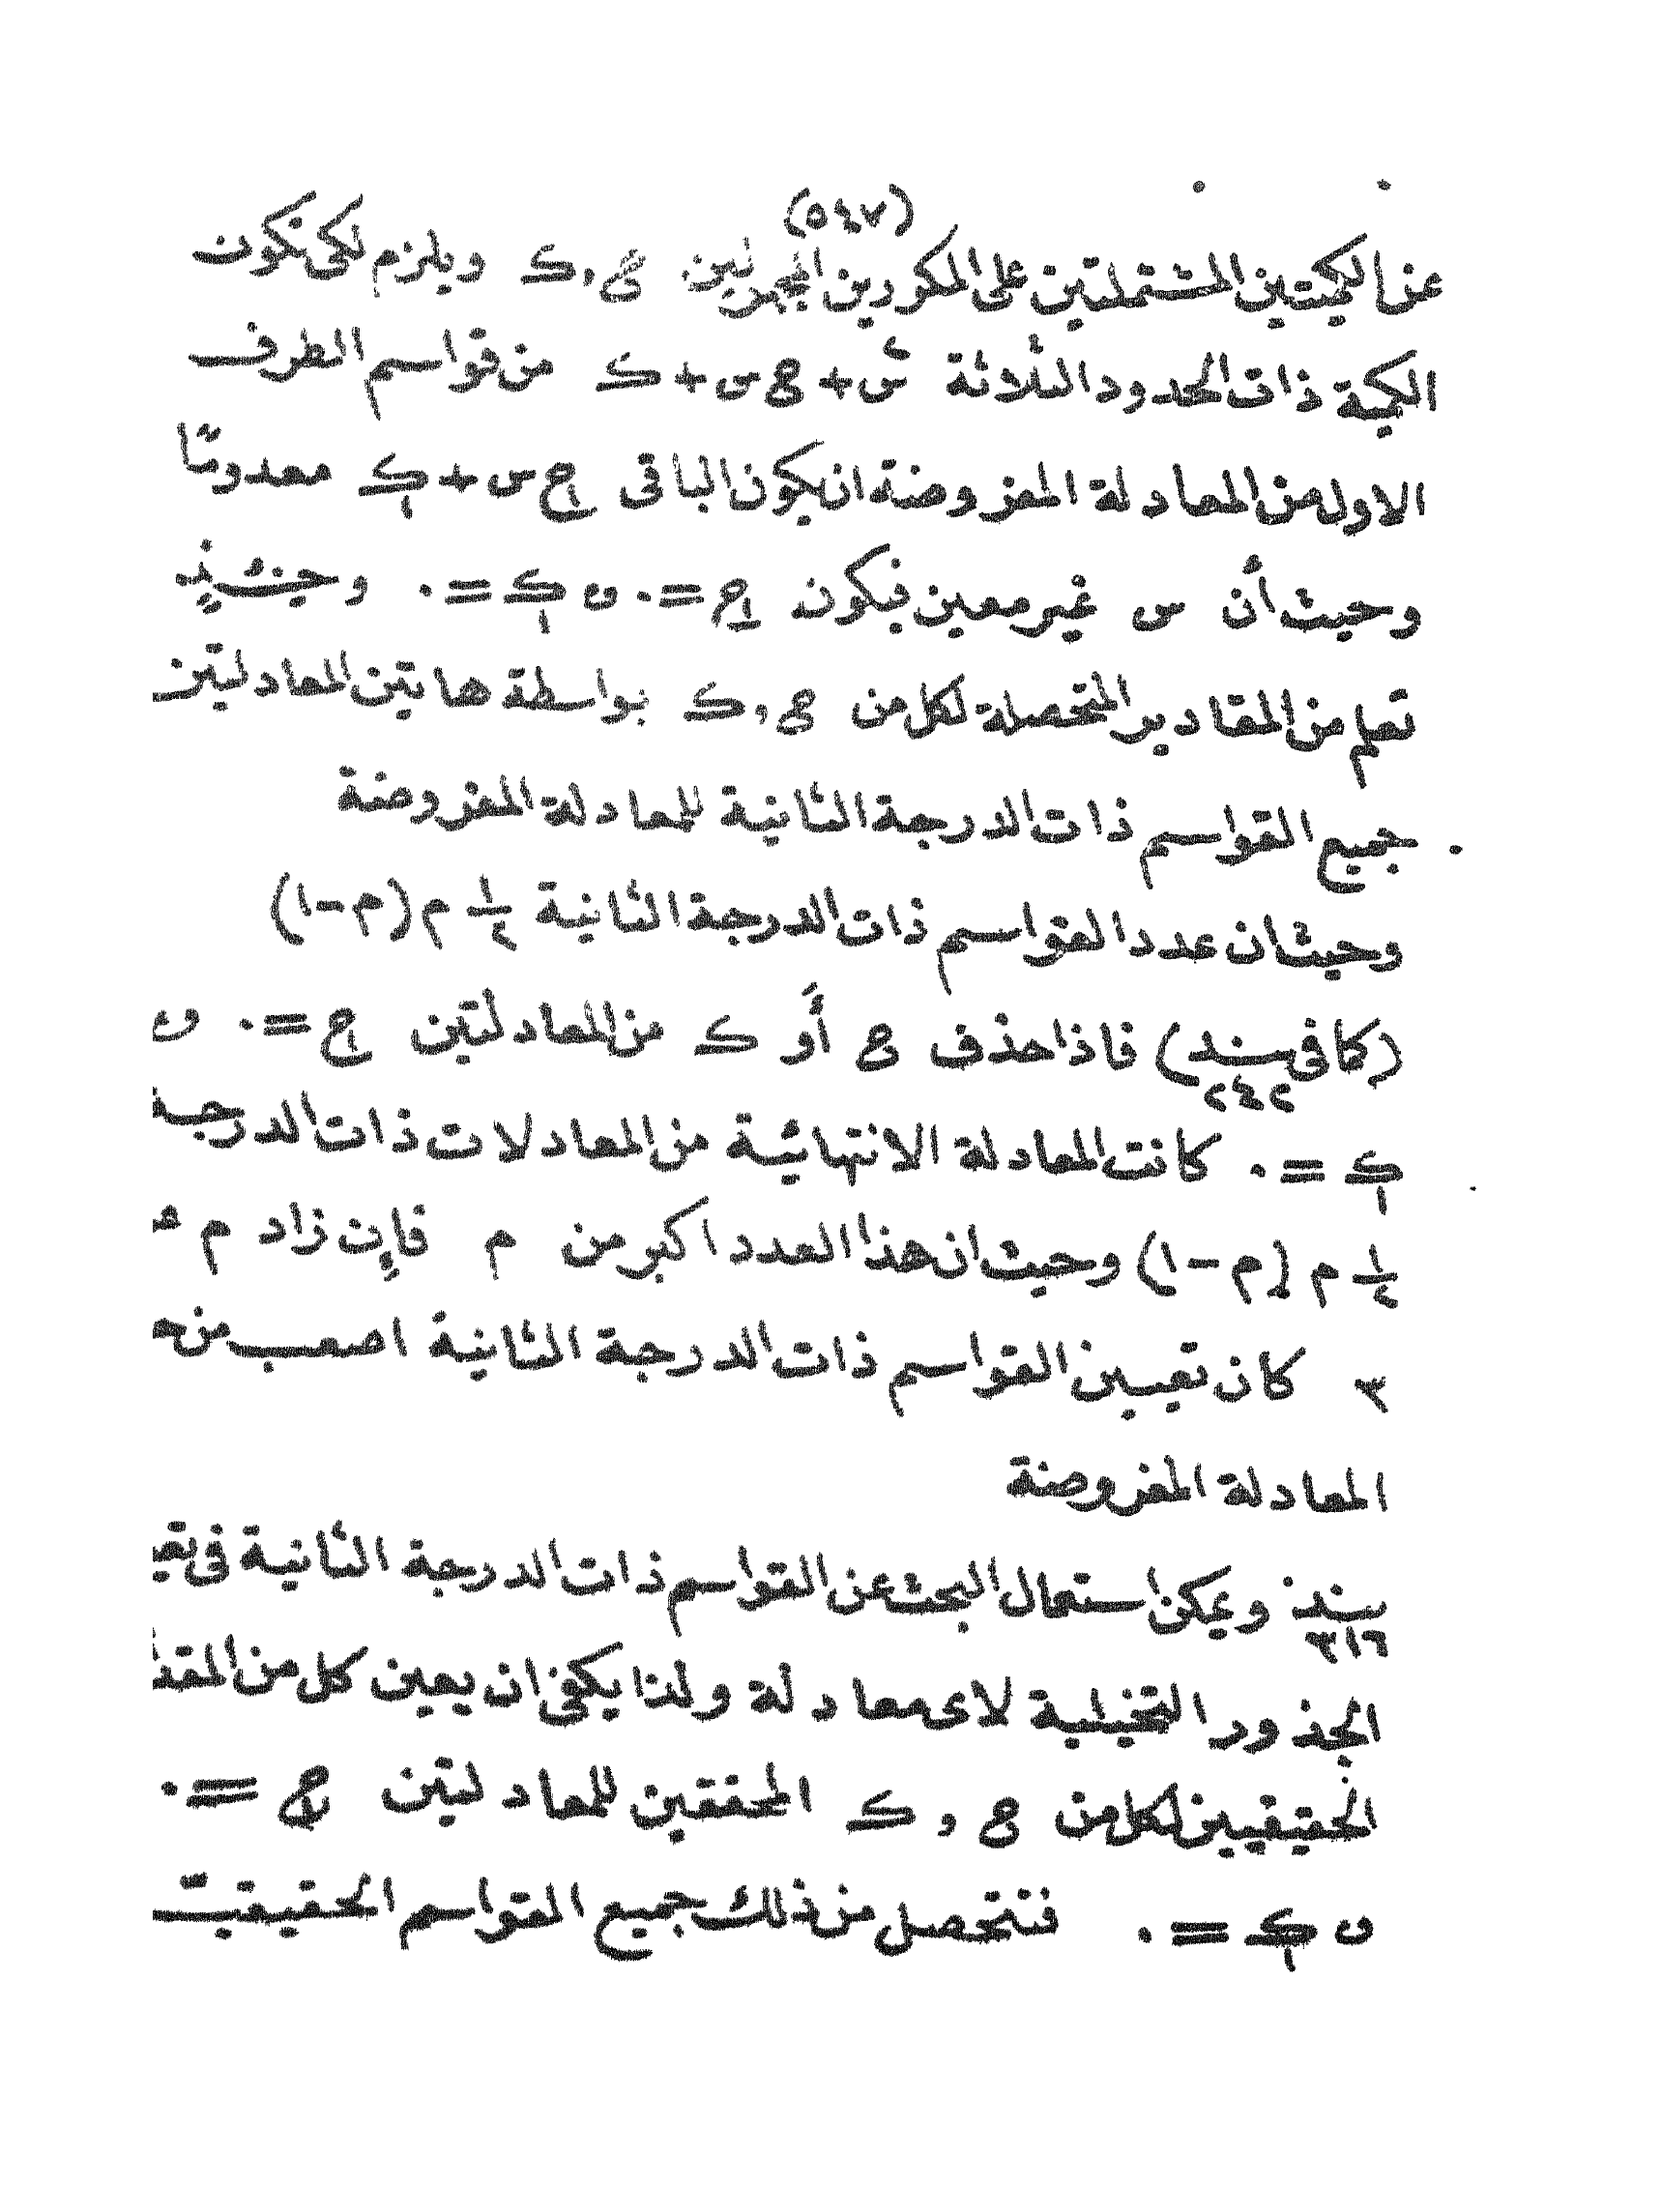 (٥٤٧)
عن الكميتين المشتملتين على المكررين المجهولين ح , ك ويلزم لكى تكون
الكمية ذات الحدود الثلاثة س٢ + ح س + ك من قواسم الطرف
الاول من المعادلة المفروضة ان يكون الباقى ح١ س + ك١ معدومًا
وحيث أن س غير معين فيكون ح١ = ٠ و ك١ = ٠ وحينئذٍ
تعلم من المقادير المتحصلة لكل من ح , ك بواسطة هاتين المعادلتين
جميع القواسم ذات الدرجة الثانية للمعادلة المفروضة
وحيث ان عدد القواسم ذات الدرجة الثانية ١/٢ م (م - ١)
(كما فى سند ٢٤٢) فاذا حذف ح أو ك من المعادلتين ح١ = ٠ و
ك١ = ٠ كانت المعادلة الانتهائية من المعادلات ذات الدرجة
١/٢ م (م - ١) وحيث ان هذا العدد اكبر من م فإن زاد م
٣ كان تعيين القواسم ذات الدرجة الثانية اصعب من
المعادلة المفروضة
سند ٣١٦ ويمكن استعمال البحث عن القواسم ذات الدرجة الثانية فى
الجذور التخيلية لاى معادلة ولذا يكفى ان يعين كل من
الحقيقيين لكل من ح , ك المحققين للمعادلتين ح١ = ٠
و ك١ = ٠ فتتحصل من ذلك جميع القواسم